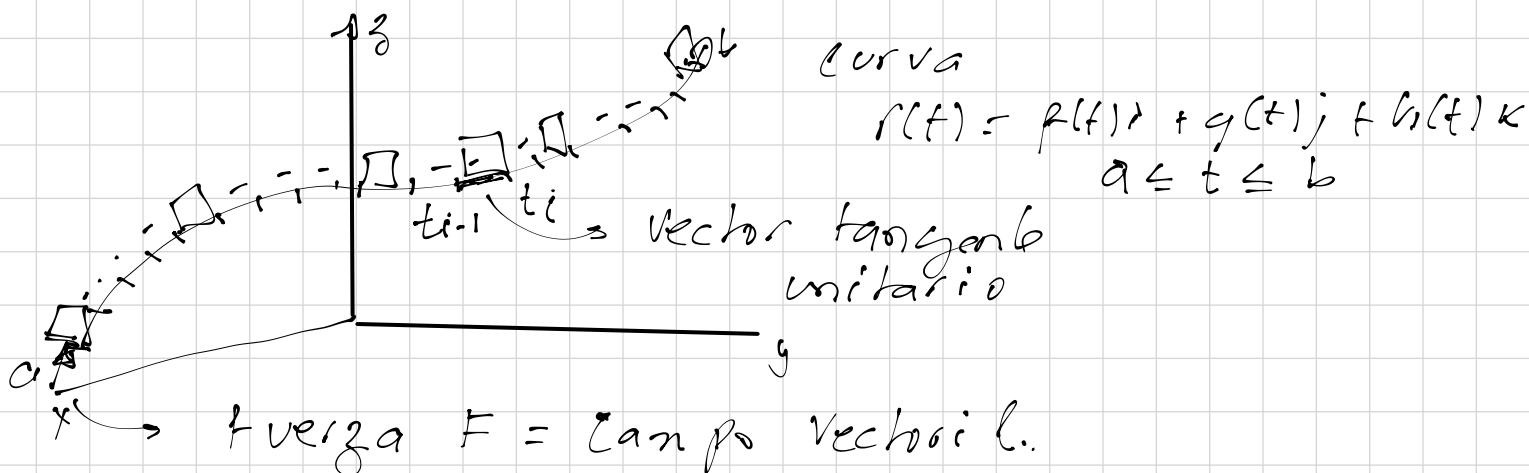 z
b
curva
r(t) = f(t)i + g(t)j + h(t)k
a ≤ t ≤ b
ti-1 ti
vector tangente
unitario
y
a
x
fuerza F = Campo Vectorial.